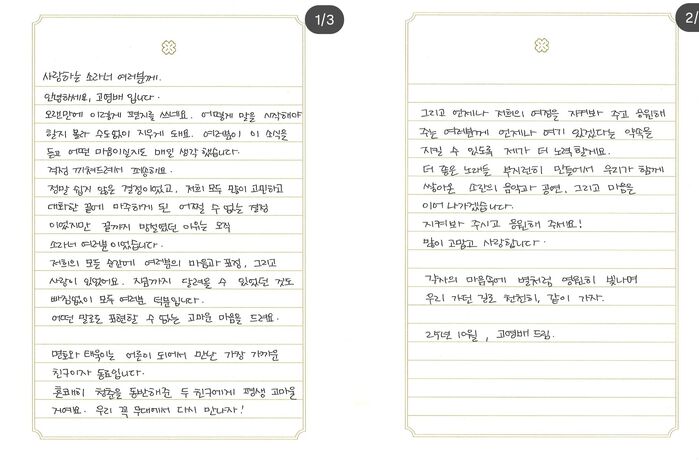 1/3
사랑하는 소라너 여러분께.
안녕하세요, 고영배 입니다.
오랜만에 이렇게 편지를 쓰네요. 어떻게 말을 시작해야
할지 몰라 수도없이 지우게 돼요. 여러분이 이 소식을
듣고 어떤 마음이실지도 매일 생각했습니다.
걱정 끼쳐드려서 죄송해요.
정말 쉽지 않은 결정이었고, 저희 모두 많이 고민하고
대화한 끝에 마주하게 된 어쩔 수 없는 결정
이었지만 끝까지 망설였던 이유는 오직
소라너 여러분 이었습니다.
저희의 모든 순간에 여러분의 마음과 표정, 그리고
사랑이 있었어요. 지금까지 달려올 수 있었던 것도
빠짐없이 모두 여러분 덕분입니다.
어떤 말로도 표현할 수 없는 고마운 마음을 드려요.
면토와 태욱이는 어른이 되어서 만난 가장 가까운
친구이자 동료입니다.
흔쾌히 청춘을 동반해준 두 친구에게 평생 고마울
거에요. 우리 꼭 무대에서 다시 만나자!
2/
그리고 언제나 저희의 여정을 지켜봐 주고 응원해
주는 여러분께 언제나 여기 있겠다는 약속을
지킬 수 있도록 제가 더 노력할게요.
더 좋은 노래들 부지런히 만들어서 우리가 함께
쌓아온 소란의 음악과 공연, 그리고 마음을
이어 나가겠습니다.
지켜봐 주시고 응원해 주세요!
많이 고맙고 사랑합니다.
각자의 마음속에 별처럼 영원히 빛나며
우리 가던 길로 천천히, 같이 가자.
25년 10월, 고영배 드림.